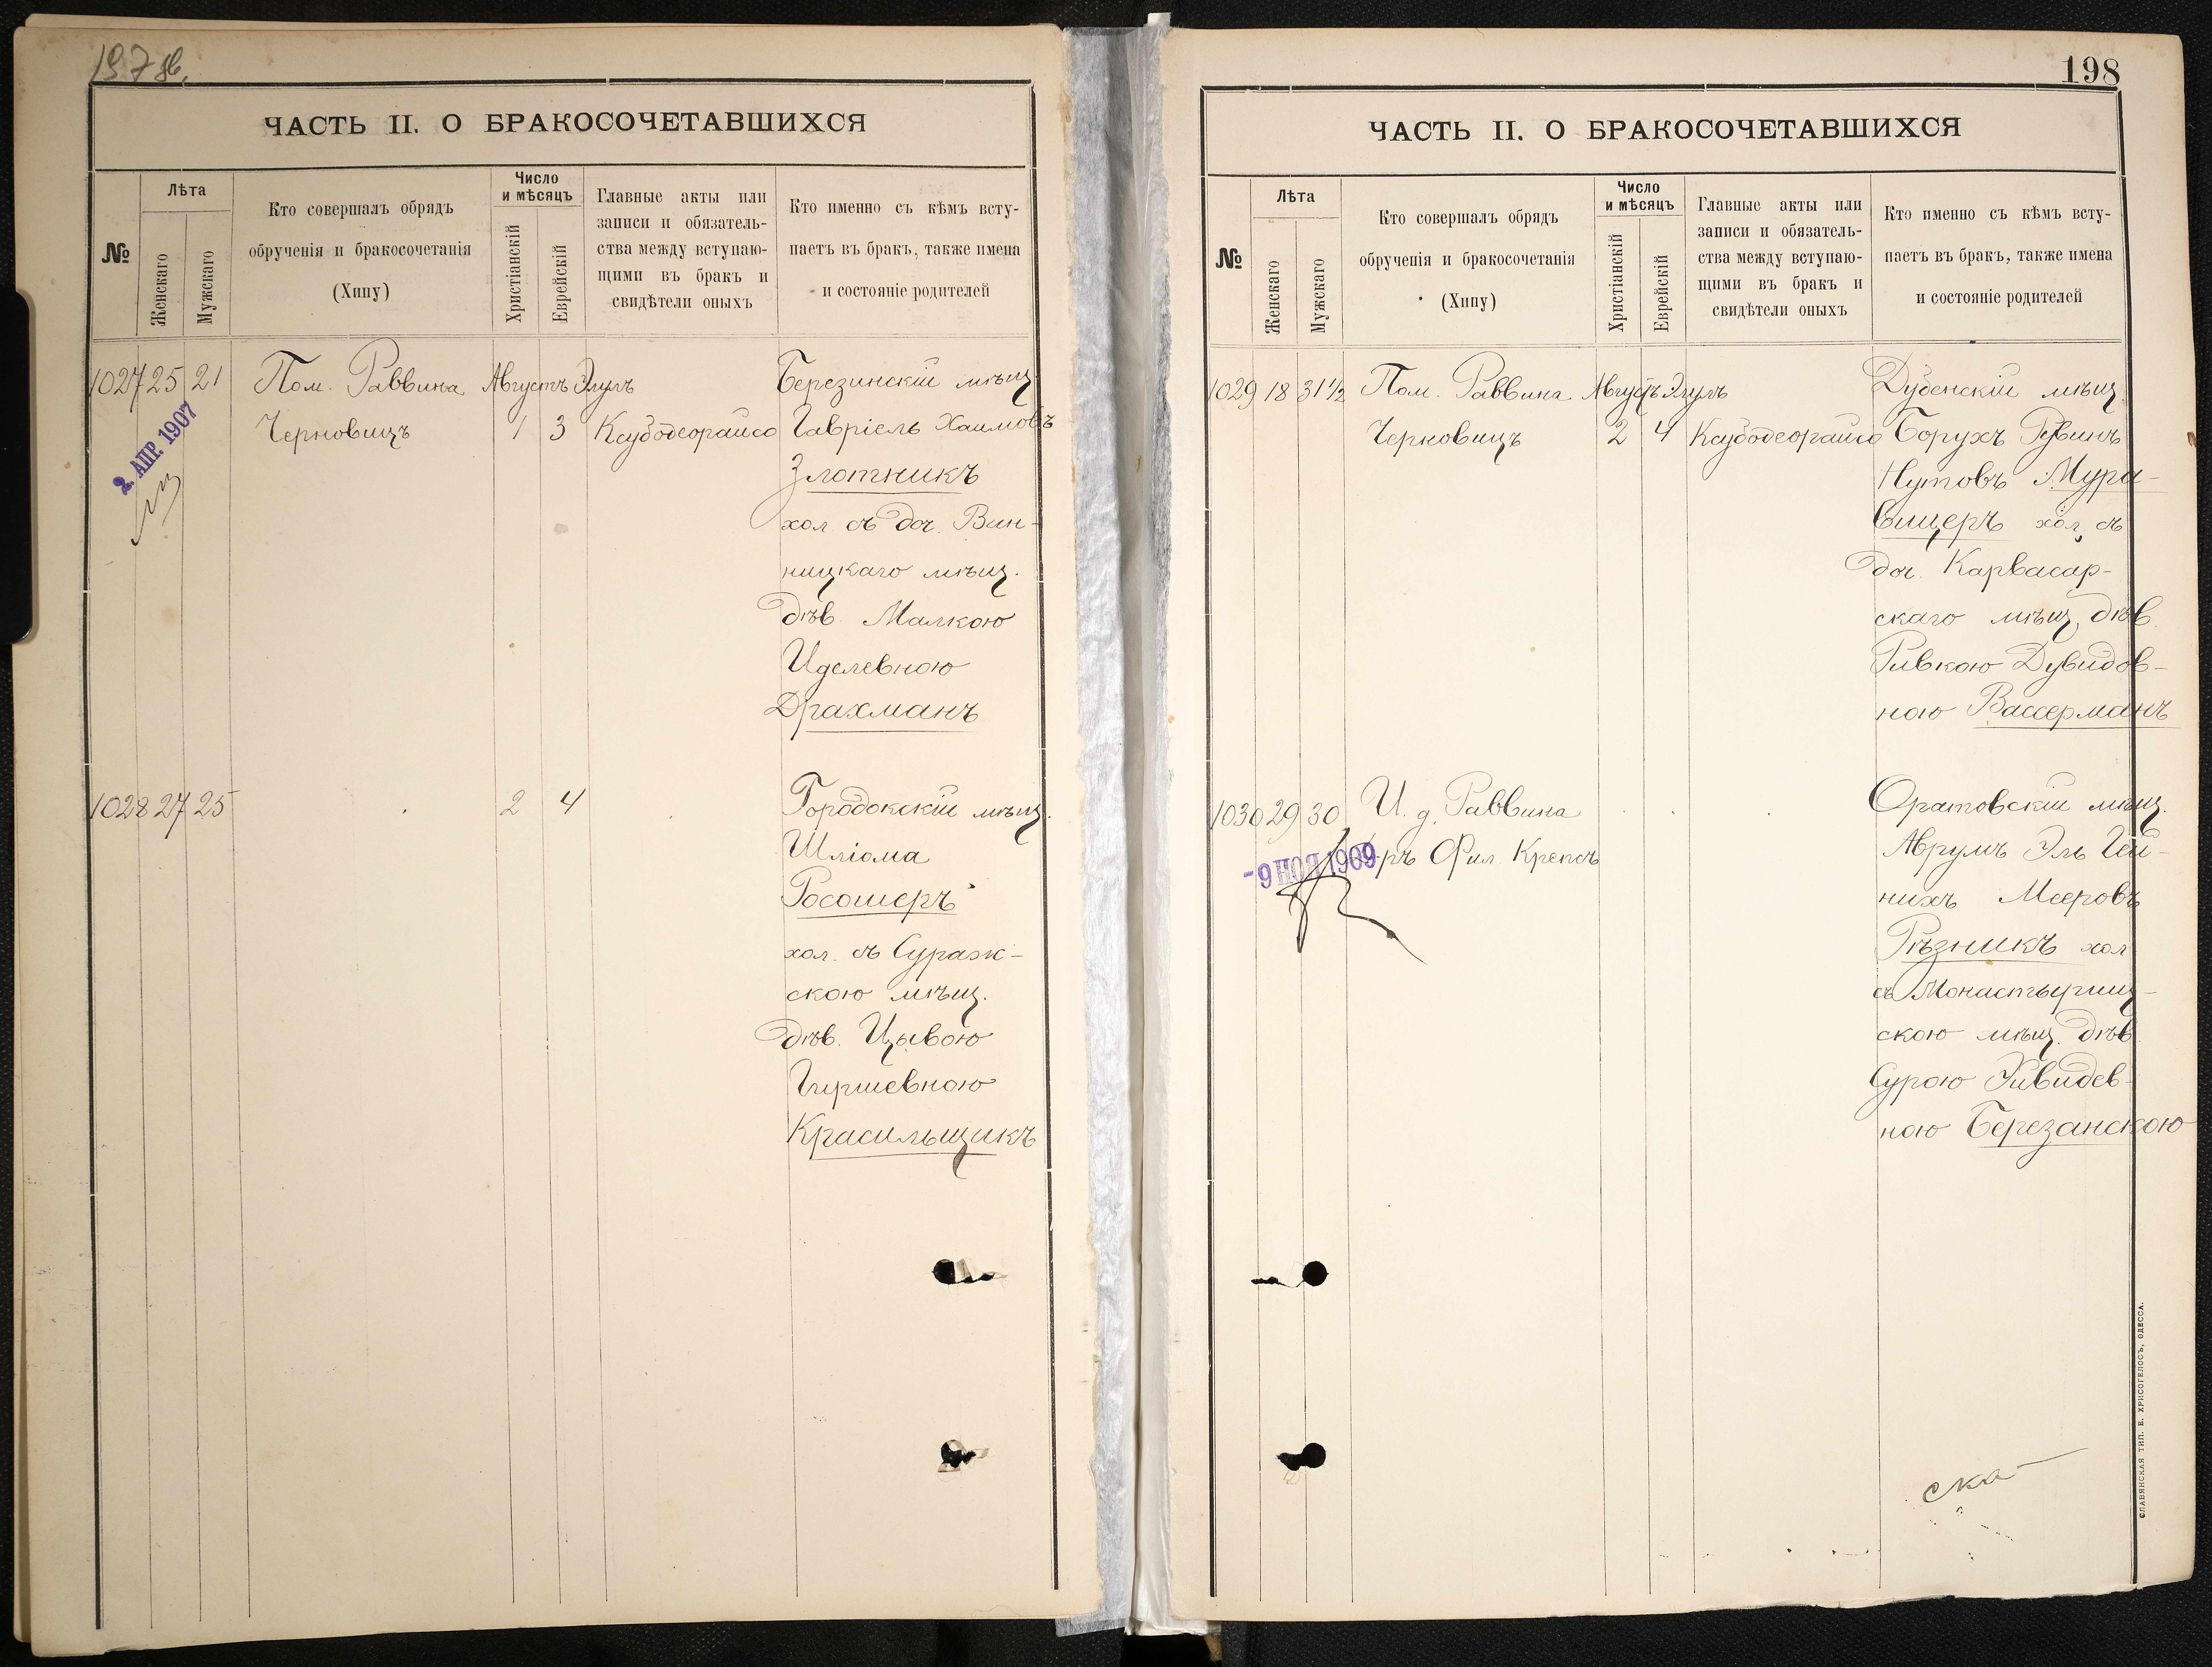 197 об.
ЧАСТЬ II. О БРАКОСОЧЕТАВШИХСЯ
№
Лѣта
Женскаго
Мужскаго
Кто совершалъ обрядъ
обрученія и бракосочетанія
(Хипу)
Число
и мѣсяцъ
Христіанскій
Еврейскій
Главные акты или
записи и обязатель-
ства между вступаю-
щими въ бракъ и
свидѣтели оныхъ
Кто именно съ кѣмъ всту-
паетъ въ бракъ, также имена
и состояніе родителей
1027 25 21 Пом. Раввина Августъ Элулъ Березинскій мѣщ.
Черновицъ 1 3 Ксубодеорайсо Гавріель Хаимовъ
2. АПР. 1907
Злотникъ
хол съ доч. Вин-
ницкаго мѣщ.
дѣв. Малкою
Иделевною
Драхманъ
1028 27 25 2 4 Городокскій мѣщ.
Шліома
Росошеръ
хол. съ Сураж-
скою мѣщ.
дѣв. Цывою
Гиршевною
Красильщикъ
198
ЧАСТЬ II. О БРАКОСОЧЕТАВШИХСЯ
№
Лѣта
Женскаго
Мужскаго
Кто совершалъ обрядъ
обрученія и бракосочетанія
(Хипу)
Число
и мѣсяцъ
Христіанскій
Еврейскій
Главные акты или
записи и обязатель-
ства между вступаю-
щими въ бракъ и
свидѣтели оныхъ
Кто именно съ кѣмъ всту-
паетъ въ бракъ, также имена
и состояніе родителей
1029 18 31½ Пом. Раввина Августъ Элулъ Дубенскій мѣщ
Черновицъ 2 4 Ксубодеорайсо Борухъ Рувинъ
Нутовъ Мура-
вицеръ хол. съ
доч. Карвасар-
скаго мѣщ, дѣв.
Ривкою Дувидов-
ною Вассерманъ
1030 29 30 И. д. Раввина Оратовскій мѣщ.
Фил. Крепсъ Аврумъ Эль Гей-
-9 НОЯ 1909
нихъ Мееровъ
Рѣзникъ хол
съ Монастырищ-
скою мѣщ. дѣв
Сурою Хивидев-
ною Березанскою
ска-
СЛАВЯНСКАЯ ТИП. Е. ХРИСОГЕЛОСЪ, ОДЕССА.